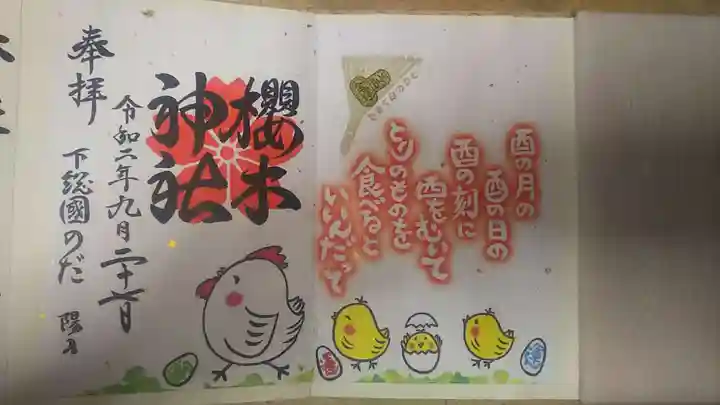 酉の月の
酉の日の
酉の刻に
酉をむいて
とりのものを
食べると
いいんだって
櫻木
神社
奉拝
令和二年九月二十七日
下総國のだ